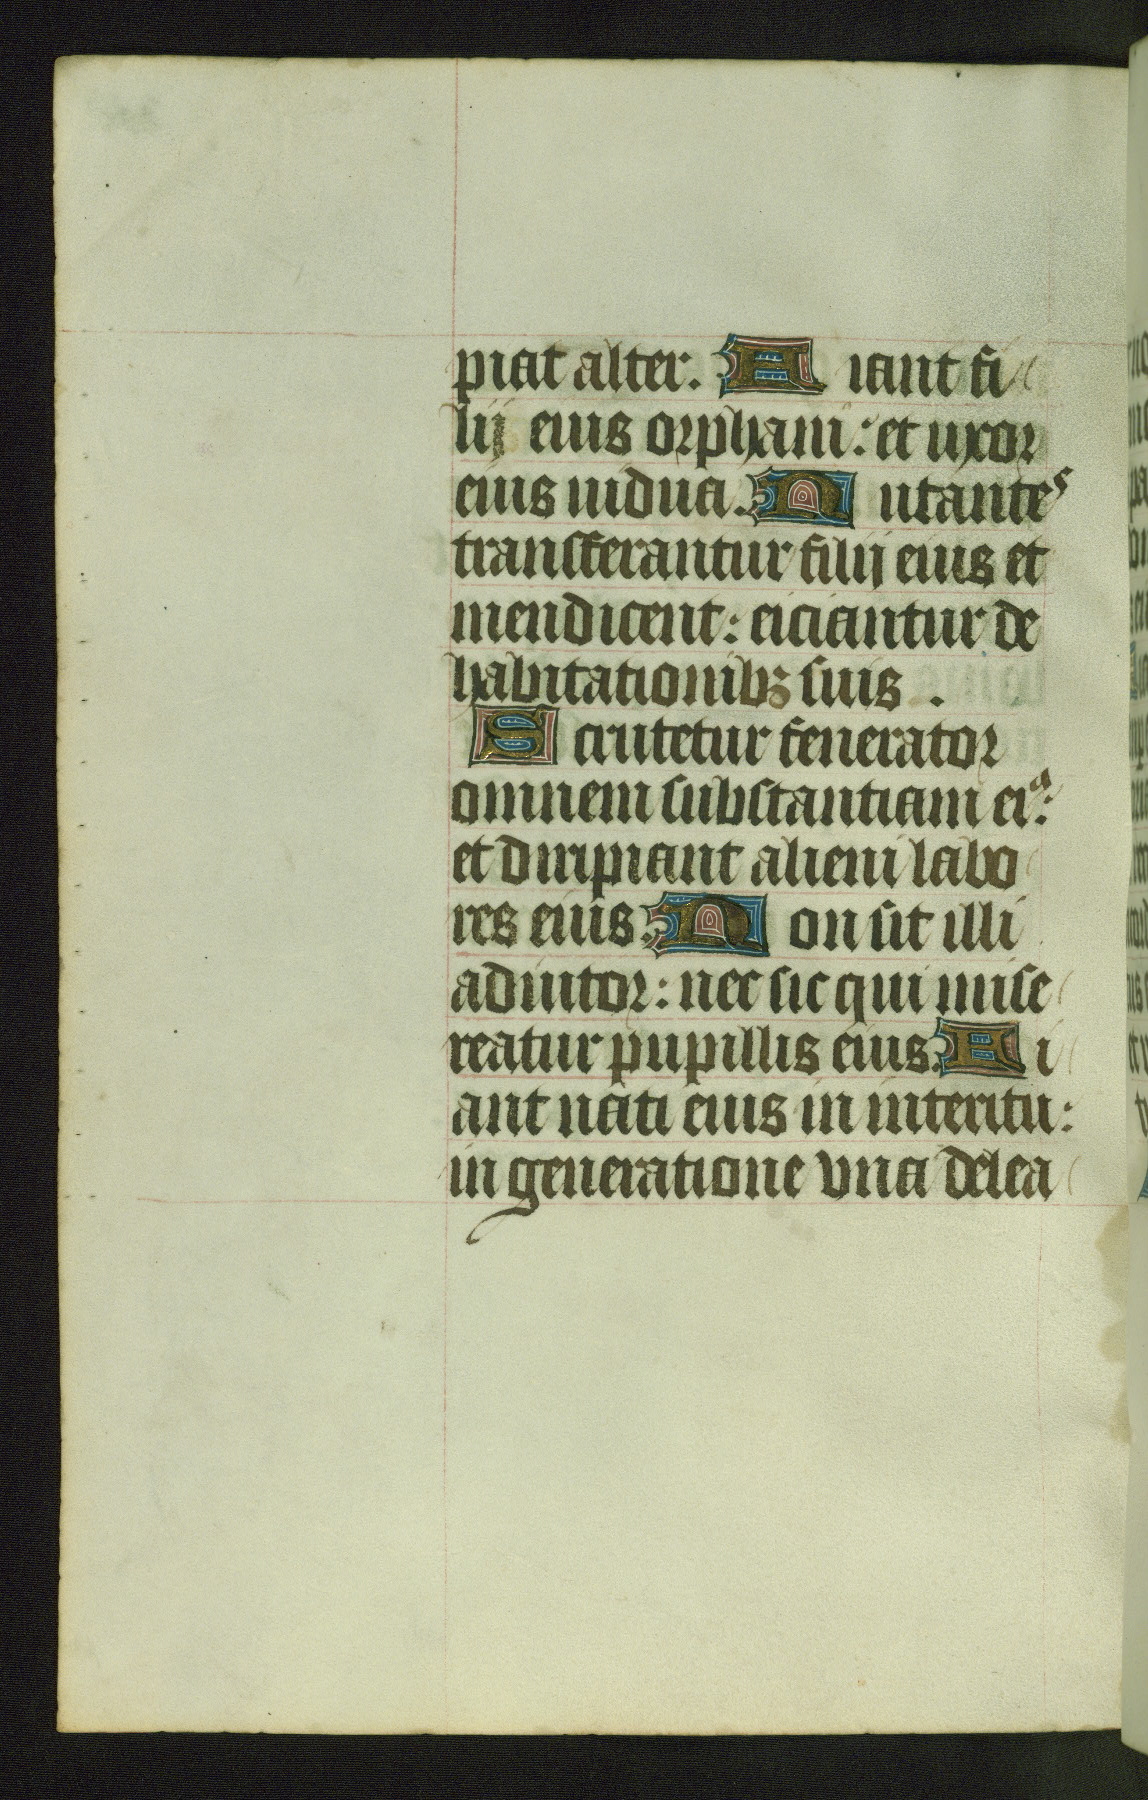 piat alter. Fiant fi
lij eius orphani: et uxor
eius uidua. Nutantes
transferantur filij eius et
mendicent: eiciantur de
habitationibꝫ suis .
Scrutetur fenerator
omnem substantiam eiꝰ:
et diripiant alieni labo
res eius. Non sit illi
adiutor: nec sic qui mise
reatur pupillis eius. Fi
ant nati eius in interitu:
in generatione vna delea